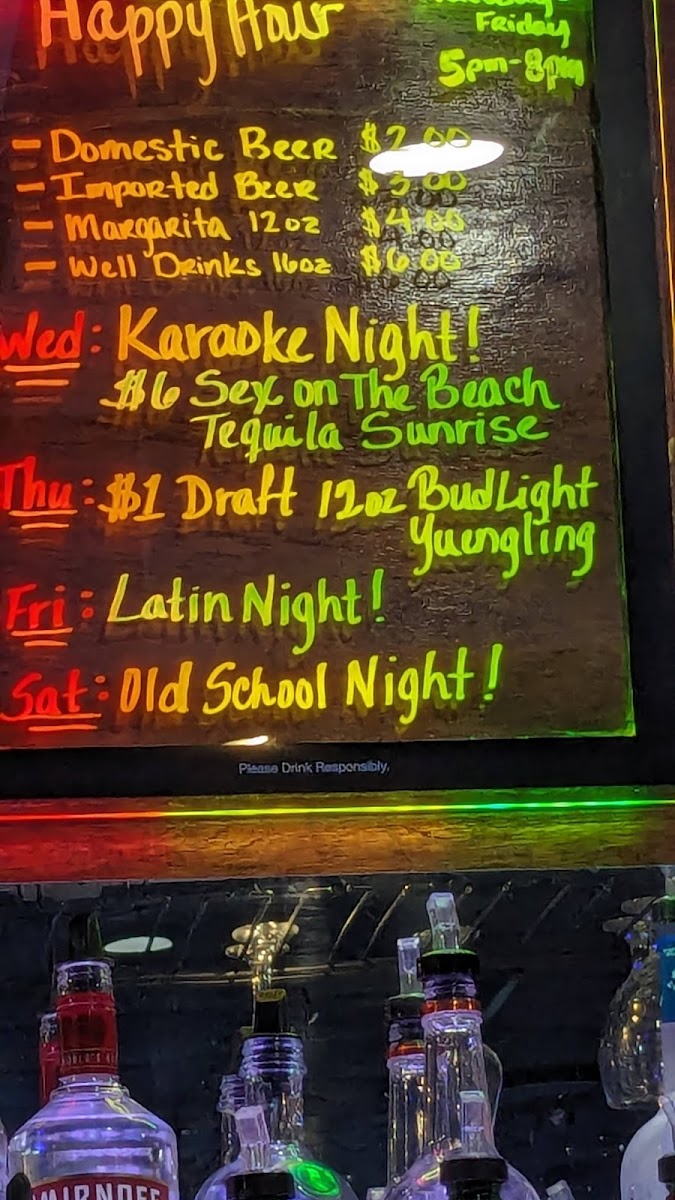 Happy Hour
Friday
5pm-8pm
- Domestic Beer $2.00
- Imported Beer $3.00
- Margarita 12oz $4.00
- Well Drinks 16oz $6.00
Wed: Karaoke Night!
$6 Sex on The Beach
Tequila Sunrise
Thu: $1 Draft 12oz Bud Light
Yuengling
Fri: Latin Night!
Sat: Old School Night!
Please Drink Responsibly.
SMIRNOFF